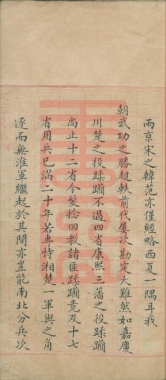 兩京宋之韓范亦僅經略西夏一隅耳我
朝武功之勝超軼前代屢次勘定大難然如嘉慶
川楚之役蹂躪不過四省康熙三藩之役蹂躪
尚止十二省今髮捻回教諸匪蹂躪竟及十七
省用兵已滿二十年若專恃湘楚一軍與之角
逐而無淮軍繼起於其間亦豈能南北分兵次